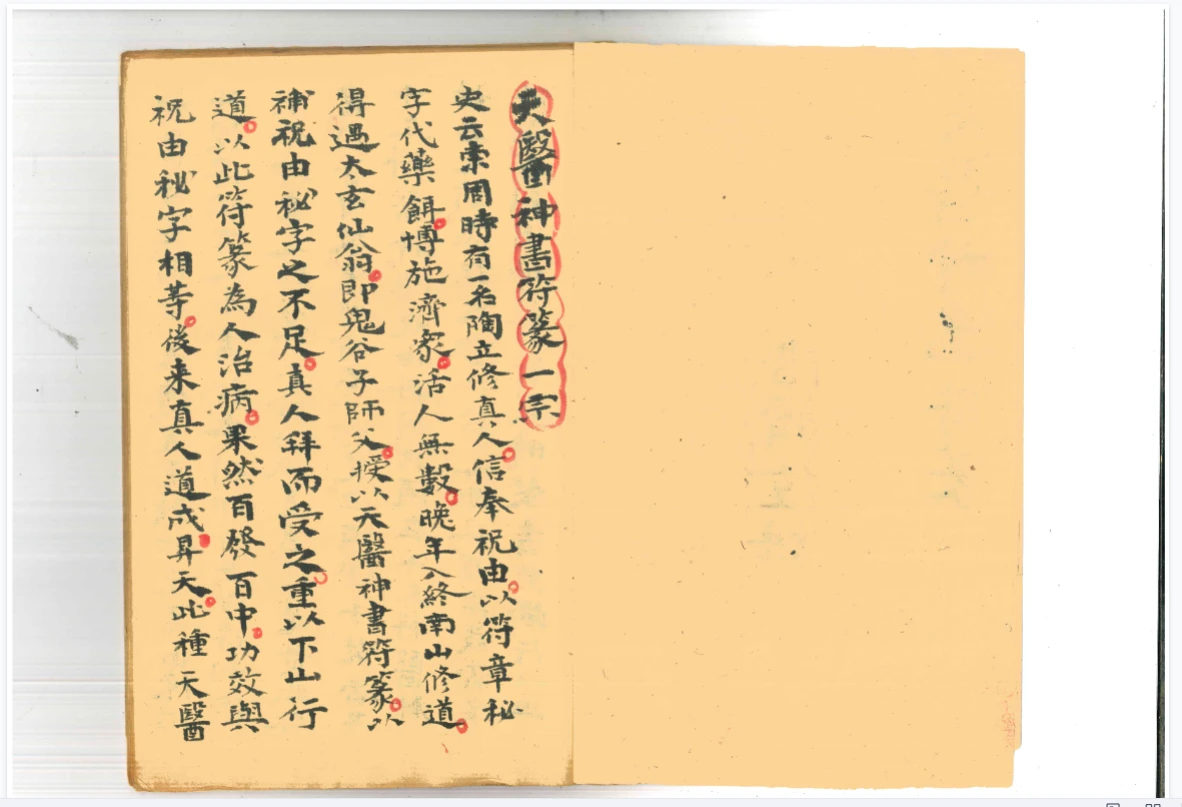 天醫神書符篆一宗
史云東周時有一名陶立修真人。信奉祝由。以符章秘
字代藥餌。博施濟衆。活人無數。晚年入終南山修道。
得遇太玄仙翁。即鬼谷子師父。授以天醫神書符篆。以
補祝由秘字之不足。真人拜而受之。重以下山行
道。以此符篆為人治病。果然百發百中。功效與
祝由秘字相等。後来真人道成。昇天。此種天醫